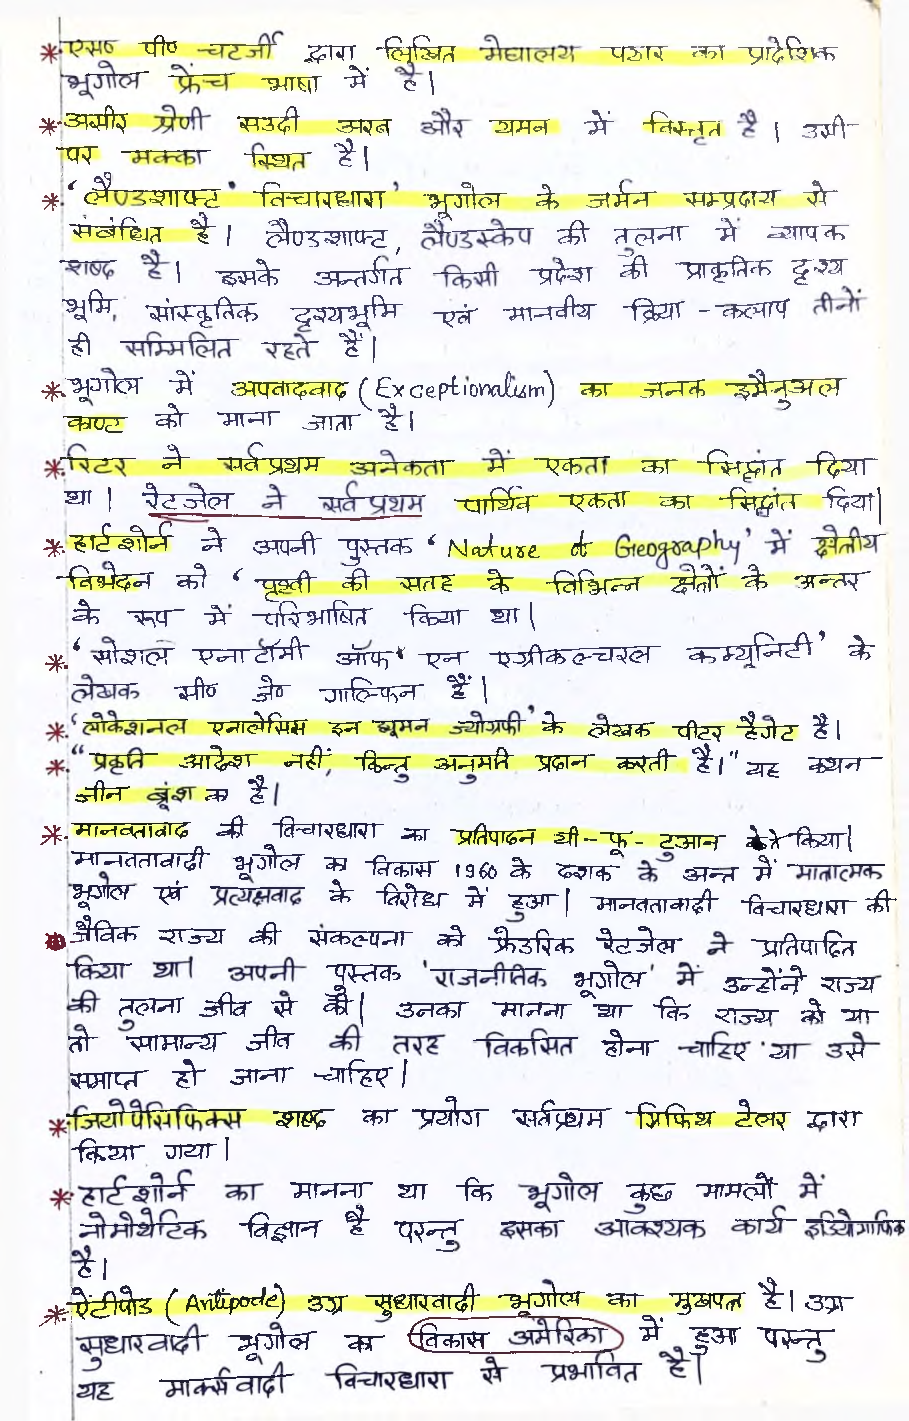 * एस० पी० चटर्जी द्वारा लिखित मेघालय पठार का प्रादेशिक
भूगोल फ्रेंच भाषा में है।
* असीर श्रेणी सउदी अरब और यमन में विस्तृत है। उसी
पर मक्का स्थित है।
* 'लैण्डशाफ्ट' विचारधारा' भूगोल के जर्मन सम्प्रदाय से
संबंधित है। लैण्डशाफ्ट, लैण्डस्केप की तुलना में व्यापक
शब्द है। इसके अन्तर्गत किसी प्रदेश की प्राकृतिक दृश्य
भूमि, सांस्कृतिक दृश्यभूमि एवं मानवीय क्रिया-कलाप तीनों
ही सम्मिलित रहते हैं।
* भूगोल में अपवादवाद (Exceptionalism) का जनक इमैनुअल
काण्ट को माना जाता है।
* रिटर ने सर्वप्रथम अनेकता में एकता का सिद्धांत दिया
था। रेटजेल ने सर्वप्रथम पार्थिव एकता का सिद्धांत दिया।
* हार्टशोर्न ने अपनी पुस्तक 'Nature of Geography' में क्षेत्रीय
विभेदन को 'पृथ्वी की सतह के विभिन्न क्षेत्रों के अन्तर
के रूप में परिभाषित किया था।
* 'सोशल एनाटॉमी ऑफ' एन एग्रीकल्चरल कम्यूनिटी' के
लेखक सी० जे० गाल्फिन हैं।
* 'लोकेशनल एनालेसिस इन ह्यूमन ज्योग्रफी' के लेखक पीटर हैगेट है।
* "प्रकृति आदेश नहीं, किन्तु अनुमति प्रदान करती है।" यह कथन
जीन ब्रूंश का है।
* मानवतावाद की विचारधारा का प्रतिपादन यी-फू-टुआन ने किया।
मानवतावादी भूगोल का विकास 1960 के दशक के अन्त में मात्रात्मक
भूगोल एवं प्रत्यक्षवाद के विरोध में हुआ। मानवतावादी विचारधारा की
* जैविक राज्य की संकल्पना को फ्रेडरिक रेटजेल ने प्रतिपादित
किया था। अपनी पुस्तक 'राजनीतिक भूगोल' में उन्होंने राज्य
की तुलना जीव से की। उनका मानना था कि राज्य को या
तो सामान्य जीव की तरह विकसित होना चाहिए या उसे
समाप्त हो जाना चाहिए।
* जियोपेसिफिक्स शब्द का प्रयोग सर्वप्रथम ग्रिफिथ टेलर द्वारा
किया गया।
* हार्टशोर्न का मानना था कि भूगोल कुछ मामलों में
नोमोथेटिक विज्ञान है परन्तु इसका आवश्यक कार्य इडियोग्राफिक
है।
* ऐंटीपोड (Antipode) उग्र सुधारवादी भूगोल का मुखपत्र है। उग्र
सुधारवादी भूगोल का विकास अमेरिका में हुआ परन्तु
यह मार्क्सवादी विचारधारा से प्रभावित है।